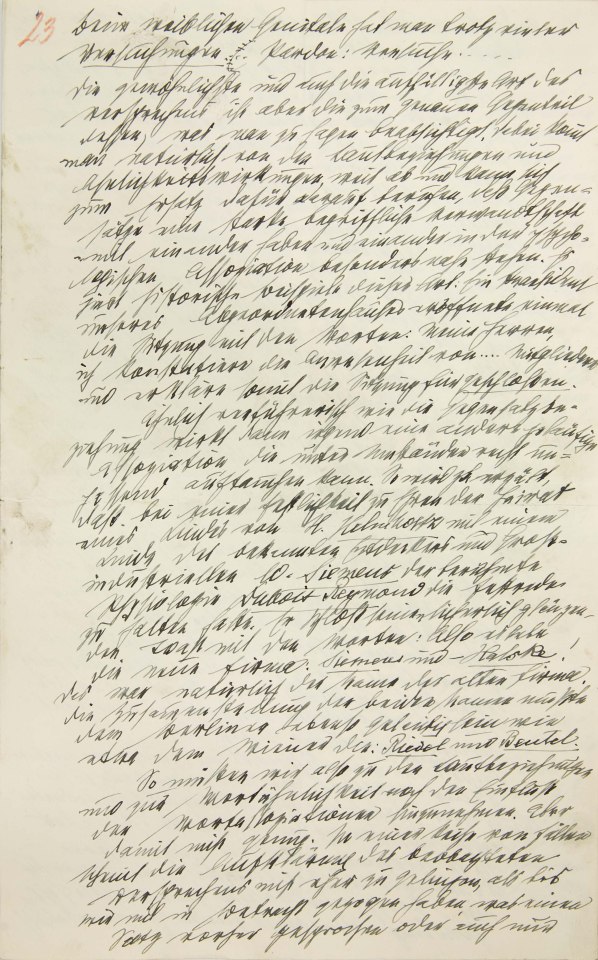 Beim weiblichen Genitale hat man trotz vieler
Versuchungen .. Pardon: Versuche .....
Die gewöhnlichste und auch die auffälligste Art des
Versprechens ist aber die zum genauen Gegenteil
dessen, was man zu sagen beabsichtigt. Dabei kommt
man natürlich von den Lautbeziehungen und
Ähnlichkeitswirkungen weit ab und kann sich
zum Ersatz dafür darauf berufen, daß Gegen-
sätze eine starke begriffliche Verwandtschaft
mit einander haben und einander in der psycho-
logischen Association besonders nahe stehen. Es
gibt historische Beispiele dieser Art. Ein Praesident
unseres Abgeordnetenhauses eröffnete einmal
die Sitzung mit den Worten: Meine Herren,
ich konstatiere die Anwesenheit von .... Mitgliedern
und erkläre somit die Sitzung für geschlossen.
Ähnlich verführerisch wie die Gegensatzbe-
ziehung wirkt dann irgend eine andere geläufige
Association die unter Umständen recht un-
passend auftauchen kann. So wird zB erzält,
daß bei einer Festlichkeit zu Ehren der Heirat
eines Kindes von H. Helmholtz mit einem
Kinde des bekannten Entdeckers und Groß-
industriellen W. Siemens der berühmte
Physiologe Dubois Reymond die Festrede
zu halten hatte. Er schloß seinen sicherlich glänzen-
den Toast mit den Worten: Also es lebe
die neue Firma: Siemens und Halske!
Das war natürlich der Name der alten Firma.
Die Zusammenstellung der beiden Namen mußte
dem Berliner ebenso geläufig sein wie
etwa dem Wiener die: Riedel und Beutel.
So müßen wir also zu den Lautbeziehungen
und zur Wortähnlichkeit noch den Einfluß
der Wortassociationen hinzunehmen. Aber
damit nicht genug. In einer Reihe von Fällen
scheint die Aufklärung des beobachteten
Versprechens nicht eher zu gelingen, als bis
wir mit in Betracht gezogen haben, was einen
Satz vorher gesprochen oder auch nur
23